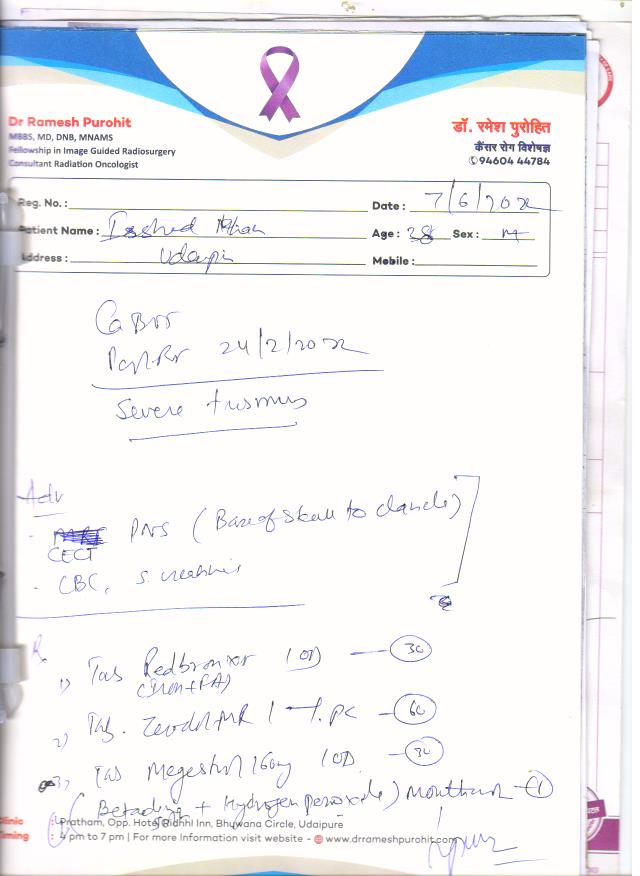 Dr Ramesh Purohit
MBBS, MD, DNB, MNAMS
Fellowship in Image Guided Radiosurgery
Consultant Radiation Oncologist
डॉ. रमेश पुरोहित
कैंसर रोग विशेषज्ञ
94604 44784
Reg. No. : Date : 7/6/2022
Patient Name : Khan Age : 28 Sex : M
Address : Udaipur Mobile :
24/2/2022
Severe trismus
Adv
- PNS (Base of skull to clavicle)
CECT
- CBC, S. creatinine
1) Tab 1 OD — 30
(Iron + FA)
2) Tab. MR 1 — 60
3) Tab Megestrol 160mg 1 OD — 30
(Betadine + Hydrogen peroxide) mouthwash — 1
Clinic : Pratham, Opp. Hotel Ridhi Inn, Bhuwana Circle, Udaipure
Timing : 4 pm to 7 pm | For more Information visit website - www.drrameshpurohit.com